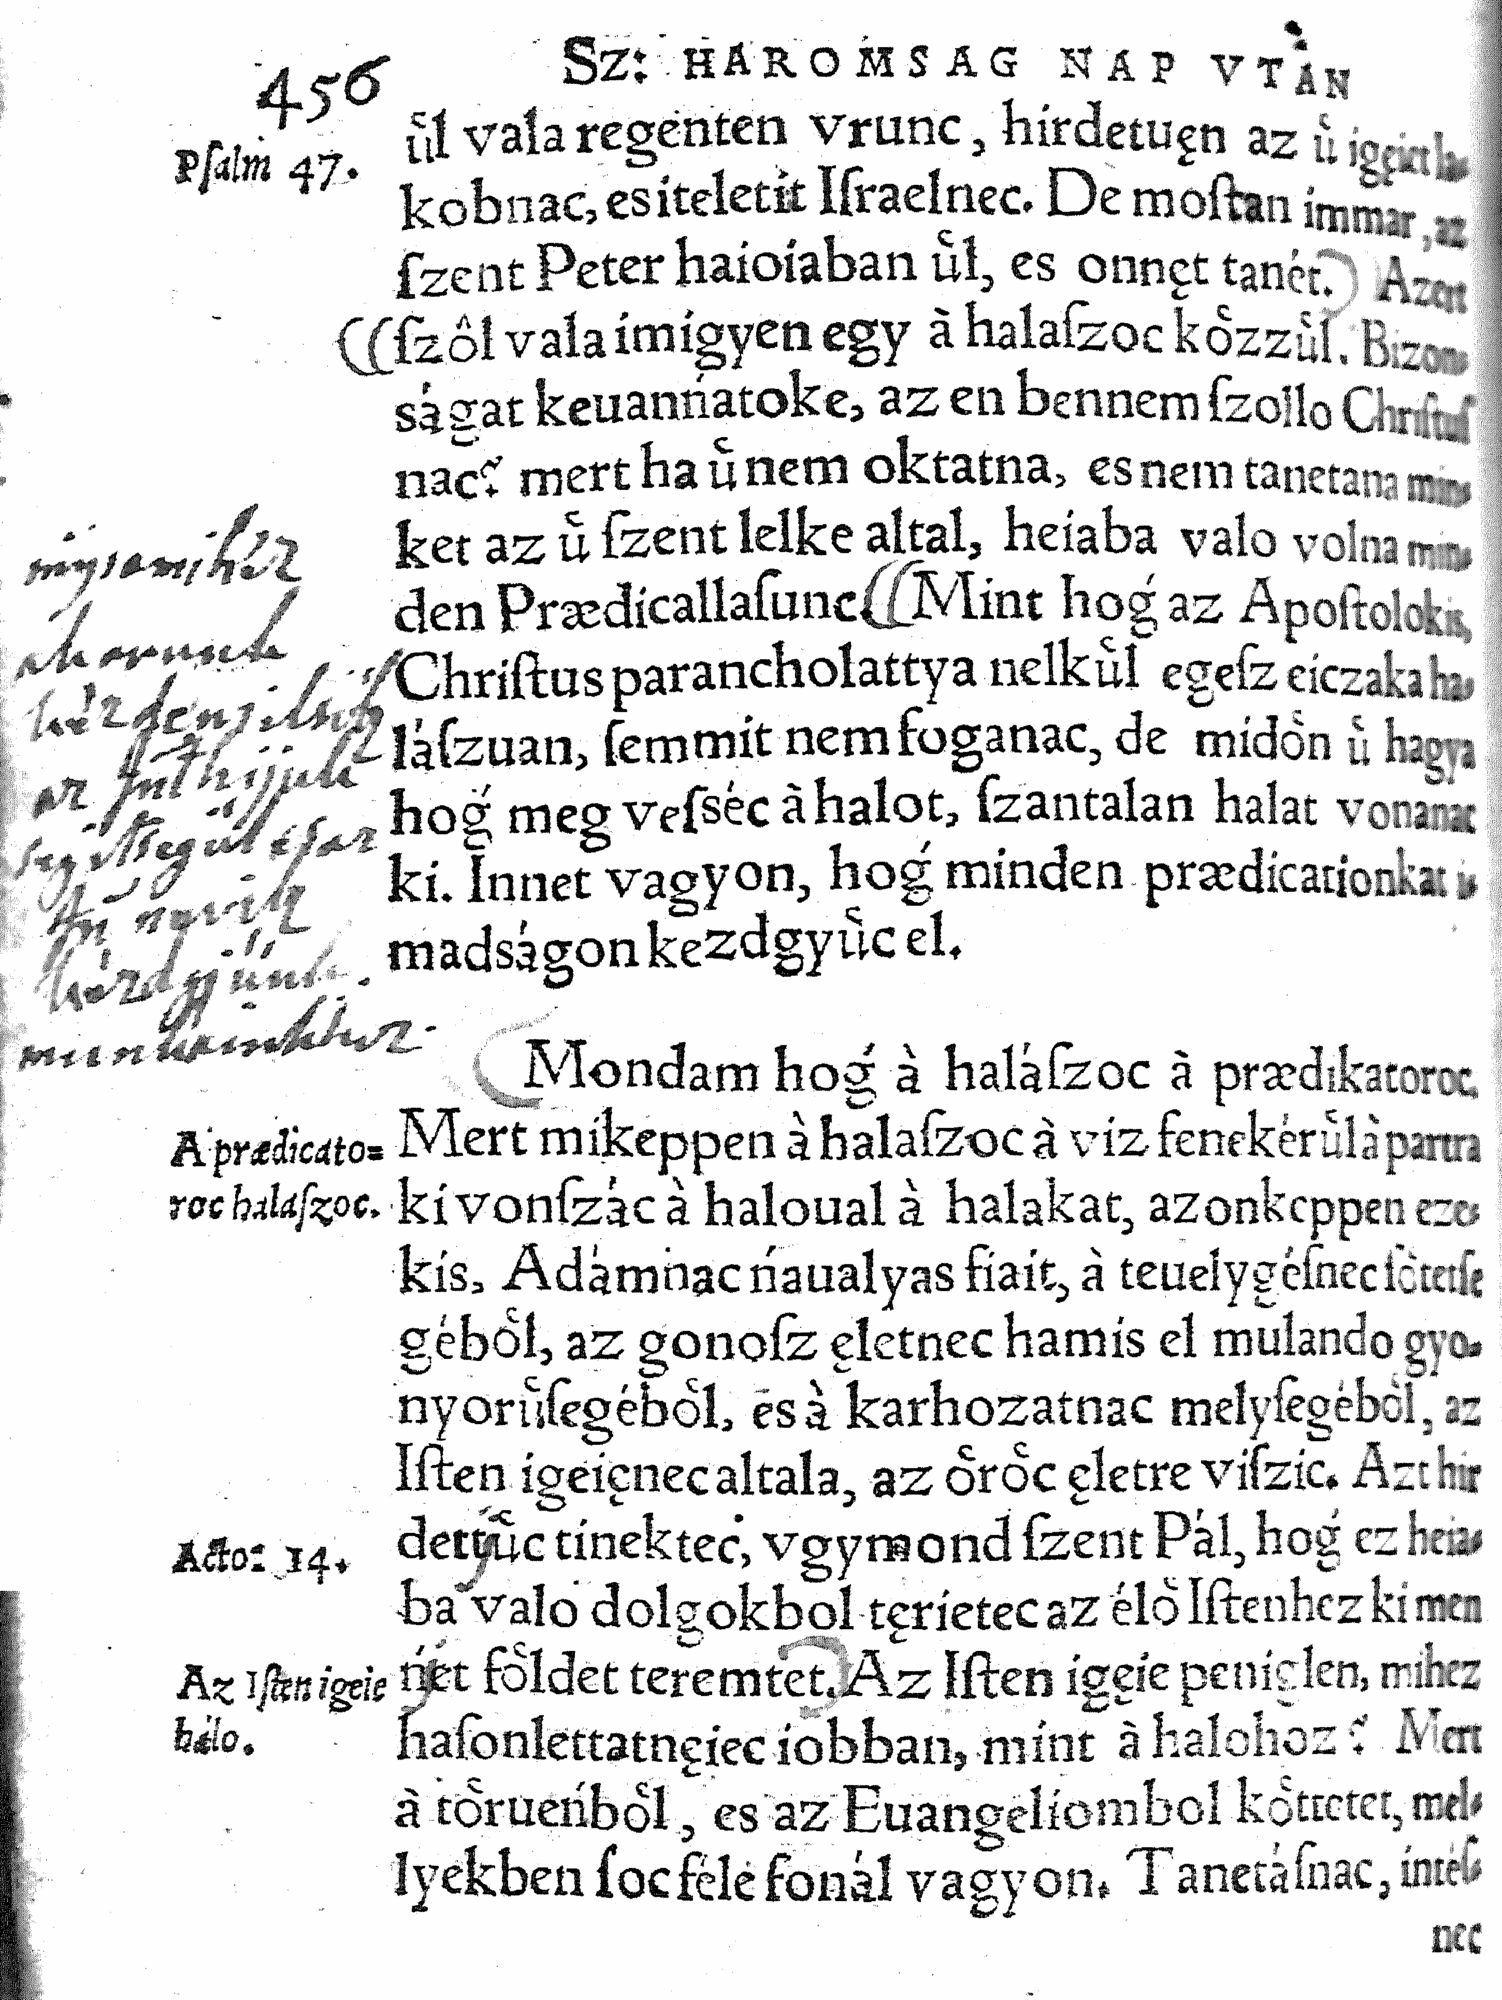 456
Sz: HAROMSAG NAP VTAN
Pſalm 47.
uͤl vala regenten vrunc, hirdetuęn az uͤ igęiet Ia-
kobnac, es iteletit Iſraelnec. De moſtan immar, az
ſzent Peter haioiaban uͤl, es onnęt tanét. Azert
ſzôl vala imigyen egy à halaſzoc koͤzzuͤl. Bizon-
ságat keuanńatoke, az en bennem ſzollo Chriſtuſ
nac? mert ha uͤ nem oktatna, es nem tanetana min-
ket az uͤ ſzent lelke altal, heiaba valo volna min-
den Prædicallaſunc. Mint hoǵ az Apoſtolokis,
Chriſtus parancholattya nelkuͤl egeſz eiczaka ha-
láſzuan, ſemmit nem foganac, de midoͤn uͤ hagya
hoǵ meg veſséc à halot, ſzantalan halat vonanac
ki. Innet vagyon, hoǵ minden prædicationkat i-
madságon kezdgyuͤc el.
Mondam hoǵ à haláſzoc à prædikatoroc.
A prædicato-
roc halaſzoc.
Mert mikeppen à halaſzoc à viz fenekéruͤl à partra
ki vonſzác à haloual à halakat, azonkeppen eze-
kis, Adámnac ńaualyas fiait, à teuelygéſnec ſoͤtetſe
géboͤl, az gonoſz ęletnec hamis el mulando gyo-
nyoruͤſegéboͤl, es à karhozatnac melyſegéboͤl, az
Iſten igeięnec altala, az oͤroͤc ęletre viſzic. Azt hir
Acto: 14.
dettyuͤc tinektec, vgymond ſzent Pál, hoǵ ez heia-
ba valo dolgokbol tęrietec az éloͤ Iſtenhez ki men
Az Iſten igeie
hálo.
ńet foͤldet teremtet. Az Iſten igęie peniglen, mihez
haſonlettatnęiec iobban, mint à halohoz? Mert
à toͤrueńboͤl, es az Euangeliombol koͤttetet, mel-
lyekben ſoc féle fonál vagyon. Tanetáſnac, intéſ-
nec